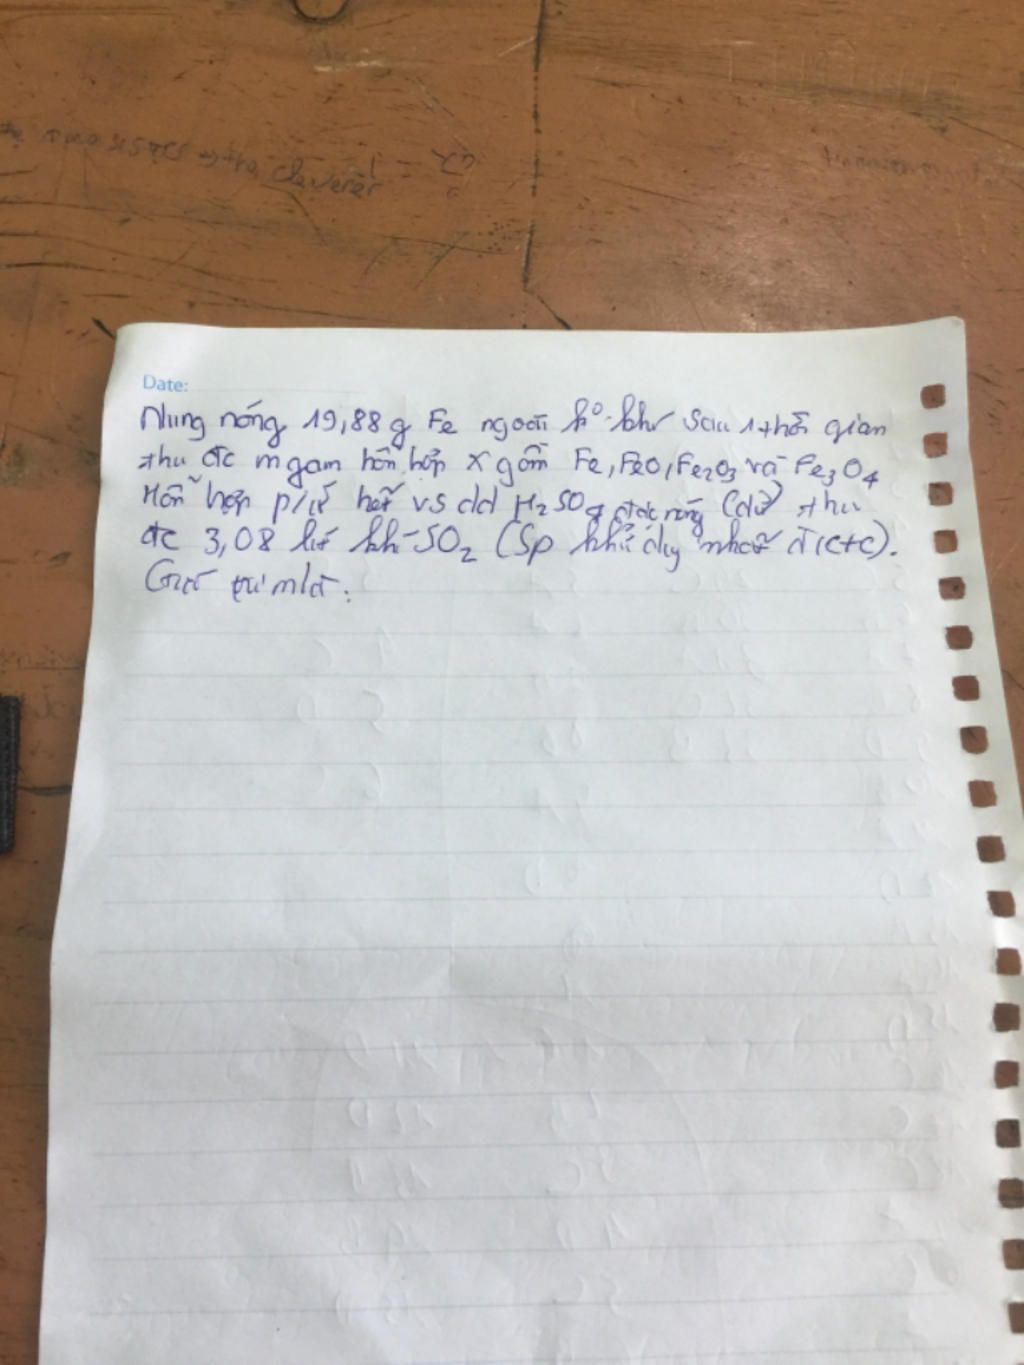 Date:
Nung nóng 19,88 g Fe ngoài ko khí sau 1 thời gian
thu đc m gam hỗn hợp X gồm Fe, FeO, Fe2O3 và Fe3O4
Hỗn hợp p/ứ hết vs dd H2SO4 đặc nóng (dư) thu
đc 3,08 lít khí SO2 (Sp khử duy nhất ở đktc).
Giá trị m là: